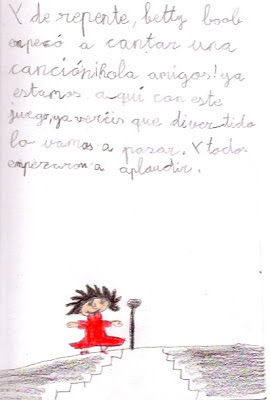 Y de repente, betty boob
empezó a cantar una
canción:¡hola amigos! ya
estamos aquí con este
juego, ya veréis que divertido
lo vamos a pasar. Y todos
empezaron a aplaudir.